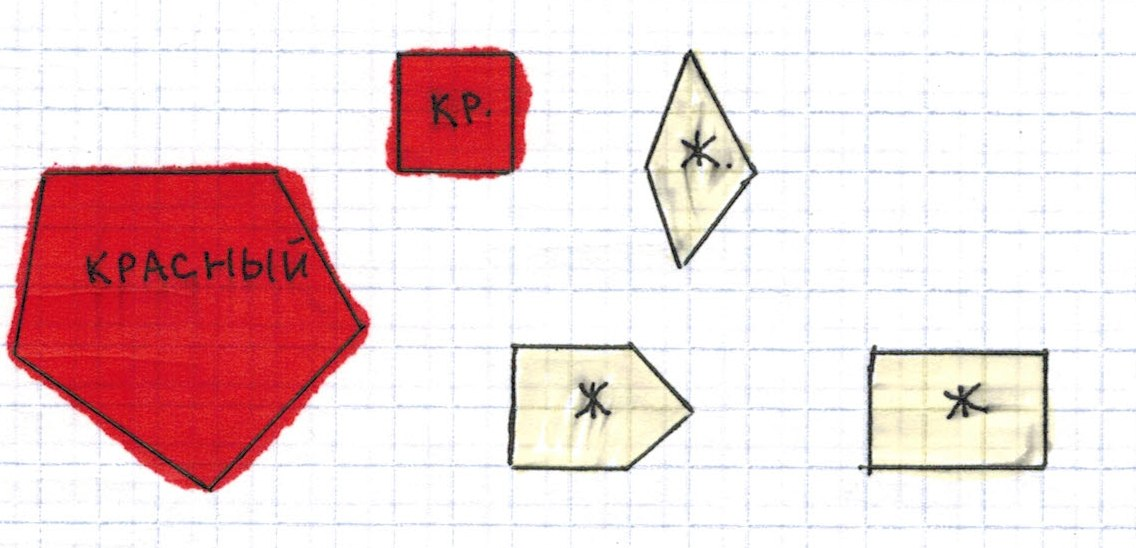 КР.
Ж.
КРАСНЫЙ
Ж
Ж